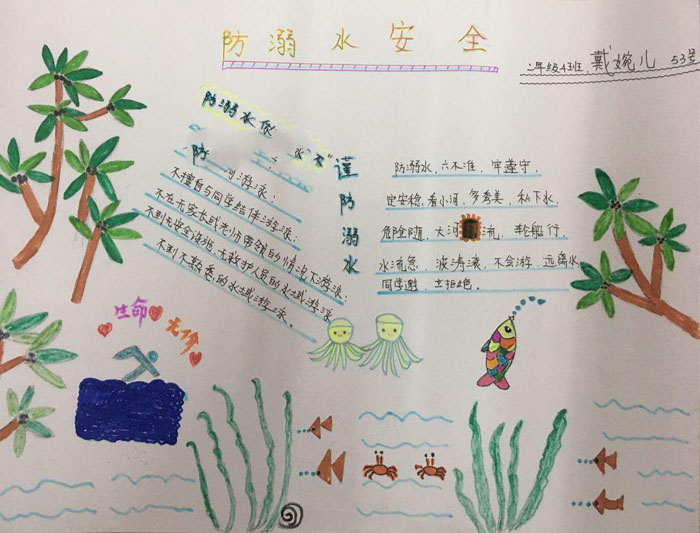 防溺水安全
二年级4班 戴婉儿 53号
防溺水
"不"
谨防溺水
防 游泳:
不擅自与同学结伴游泳:
不在无家长或老师带领的情况下游泳:
不到无安全设施、无救护人员的水域游泳
不到不熟悉的水域游泳.
防溺水、六不准、牢遵守、
看小河、多秀美、私下水、
危险随、大河 流、轮船行、
水流急、波涛滚、不会游 远离水
同学邀 立拒绝.
生命无价